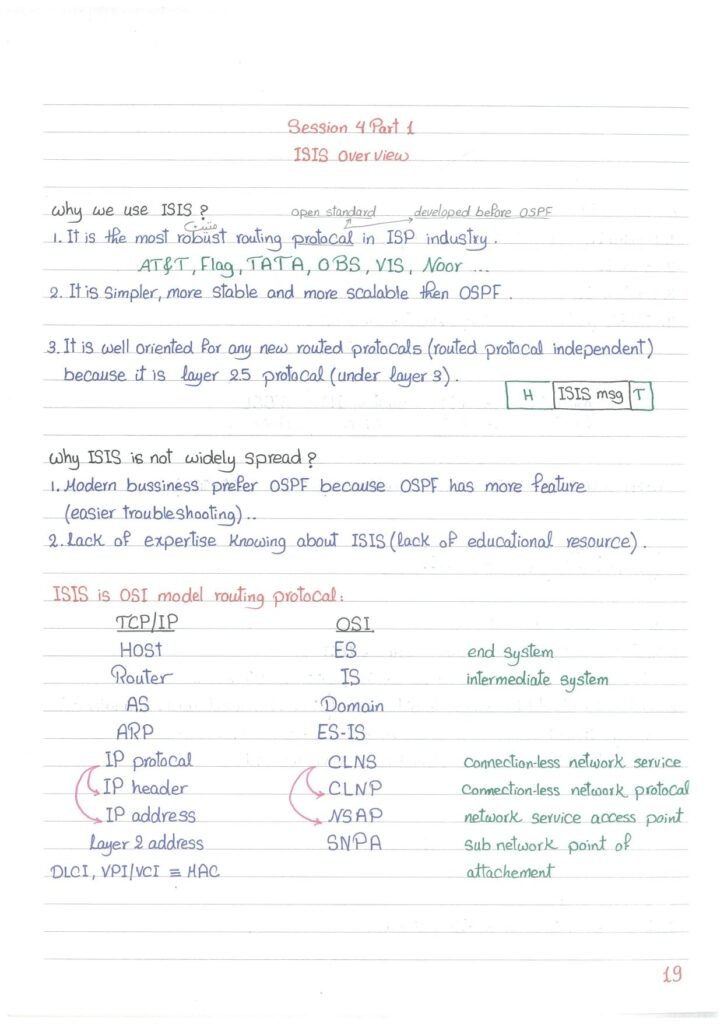 Session 4 Part 1
ISIS Over view
why we use ISIS ?
open standard developed before OSPF
متين
1. It is the most robust routing protocal in ISP industry.
AT&T, Flag, TATA, OBS, VIS, Noor ...
2. It is simpler, more stable and more scalable then OSPF.
3. It is well oriented for any new routed protocals (routed protocal independent)
because it is layer 2.5 protocal (under layer 3).
H ISIS msg T
why ISIS is not widely spread ?
1. Modern bussiness prefer OSPF because OSPF has more feature
(easier troubleshooting)..
2. lack of expertise knowing about ISIS (lack of educational resource).
ISIS is OSI model routing protocal:
TCP/IP OSI
Host ES end system
Router IS intermediate system
AS Domain
ARP ES-IS
IP protocal CLNS Connection-less network service
IP header CLNP Connection-less network protocal
IP address NSAP network service access point
layer 2 address SNPA sub network point of
DLCI, VPI/VCI ≡ MAC attachement
19